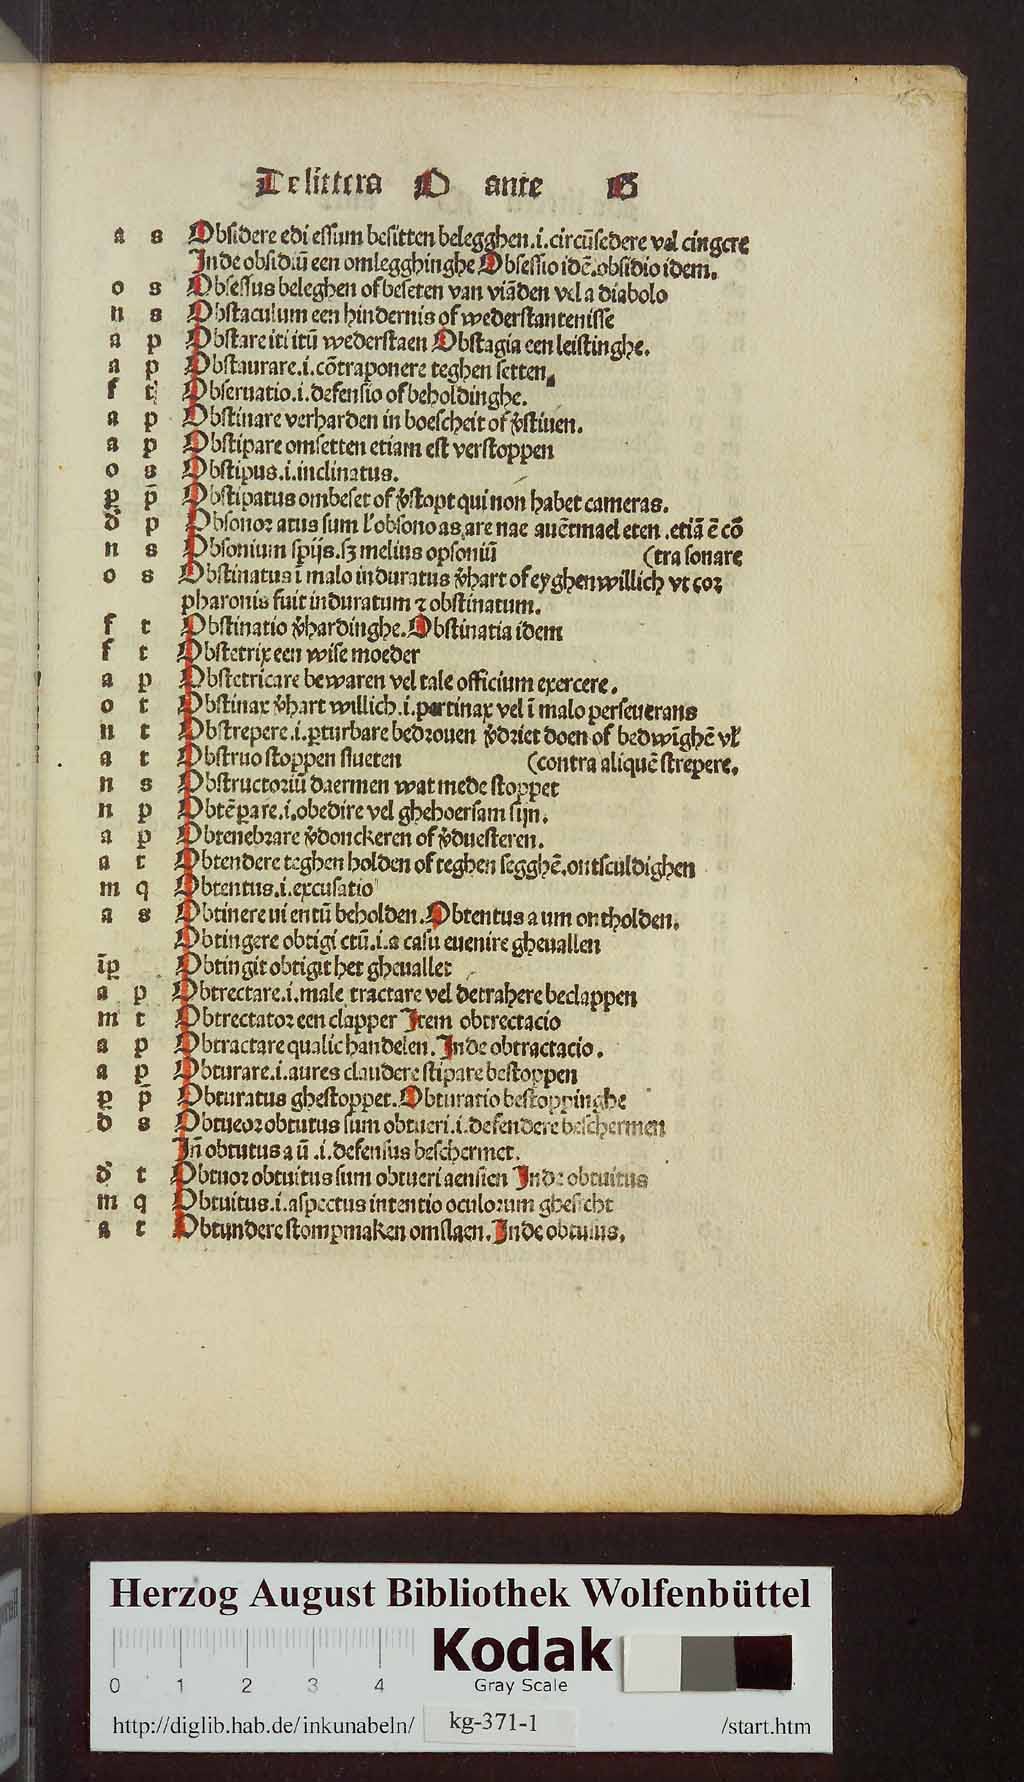 De littera O ante B
a s Obsidere edi essum besitten belegghen .i. circūsedere vel cingere
Inde obsidiū een omlegghinghe Obsessio idē. obsidio idem.
o s Obsessus beleghen of beseten van viāden vel a diabolo
n s Obstaculum een hindernis of wederstantenisse
a p Obstare iti itū wederstaen Obstagia een leistinghe.
a p Obstaurare .i. cōtraponere teghen setten.
f t Obseruatio .i. defensio of beholdinghe.
a p Obstinare verharden in boescheit of v̄stiuen.
a p Obstipare omsetten etiam est verstoppen
o s Obstipus .i. inclinatus.
ꝑ p̄ Obstipatus ombeset of v̄stopt qui non habet cameras.
d p Obsonor atus sum l' obsono as are nae auētmael eten . etiā ē cō
n s Obsonium spijs. sꝫ melius opsoniū (tra sonare
o s Obstinatus ī malo induratus v̄hart of eyghenwillich vt cor
pharonis fuit induratum ⁊ obstinatum.
f t Obstinatio v̄hardinghe. Obstinatia idem
f t Obstetrix een wise moeder
a p Obstetricare bewaren vel tale officium exercere.
o t Obstinax v̄hart willich .i. pertinax vel ī malo perseuerans
n t Obstrepere .i. ꝑturbare bedrouen v̄driet doen of bedwīghē vl'
a t Obstruo stoppen slueten (contra aliquē strepere.
n s Obstructoriū daermen wat mede stoppet
n p Obtēꝑare .i. obedire vel ghehoersam sijn.
a p Obtenebrare v̄donckeren of v̄duesteren.
a t Obtendere teghen holden of teghen segghē. ontsculdighen
m q Obtentus .i. excusatio
a s Obtinere ui entū beholden. Obtentus a um ontholden.
Obtingere obtigi ctū .i. a casu euenire gheuallen
īꝑ Obtingit obtigit het gheuallet
a p Obtrectare .i. male tractare vel detrahere beclappen
m t Obtrectator een clapper Item obtrectacio
a p Obtractare qualic handelen. Inde obtractacio.
a p Obturare .i. aures claudere stipare bestoppen
ꝑ p̄ Obturatus ghestoppet. Obturatio bestoppinghe
d s Obtueor obtutus sum obtueri .i. defendere beschermen
Iñ obtutus a ū .i. defensus beschermet.
d t Obtuor obtuitus sum obtueri aensien Inde obtuitus
m q Obtuitus .i. aspectus intentio oculorum ghesicht
a t Obtundere stompmaken omslaen. Inde obtusus.
Herzog August Bibliothek Wolfenbüttel
Kodak
Gray Scale
0 1 2 3 4
http://diglib.hab.de/inkunabeln/ kg-371-1 /start.htm